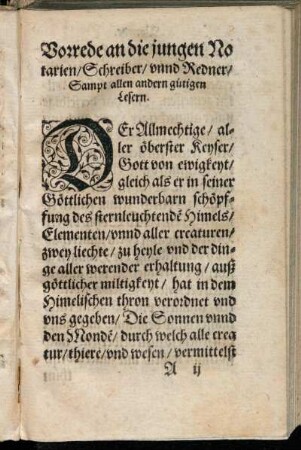 Vorrede an die jungen No
tarien/ Schreiber/ vnnd Redner/
Sampt allen andern gütigen
Lesern.
DEr Allmechtige/ al-
ler öberster Keyser/
Gott von ewigkeyt/
gleich als er in seiner
Göttlichen wunderbarn schöpf-
fung des sternleuchtendē Himels/
Elementen/ vnnd aller creaturen/
zwey liechte/ zu heyle vnd der din-
ge aller werender erhaltung/ auß
göttlicher miltigkeyt/ hat in dem
Himelischen thron verordnet vnd
vns gegeben/ Die Sonnen vnnd
den Mondē/ durch welch alle crea
tur/ thiere/ vnd wesen/ vermittelst
A ij